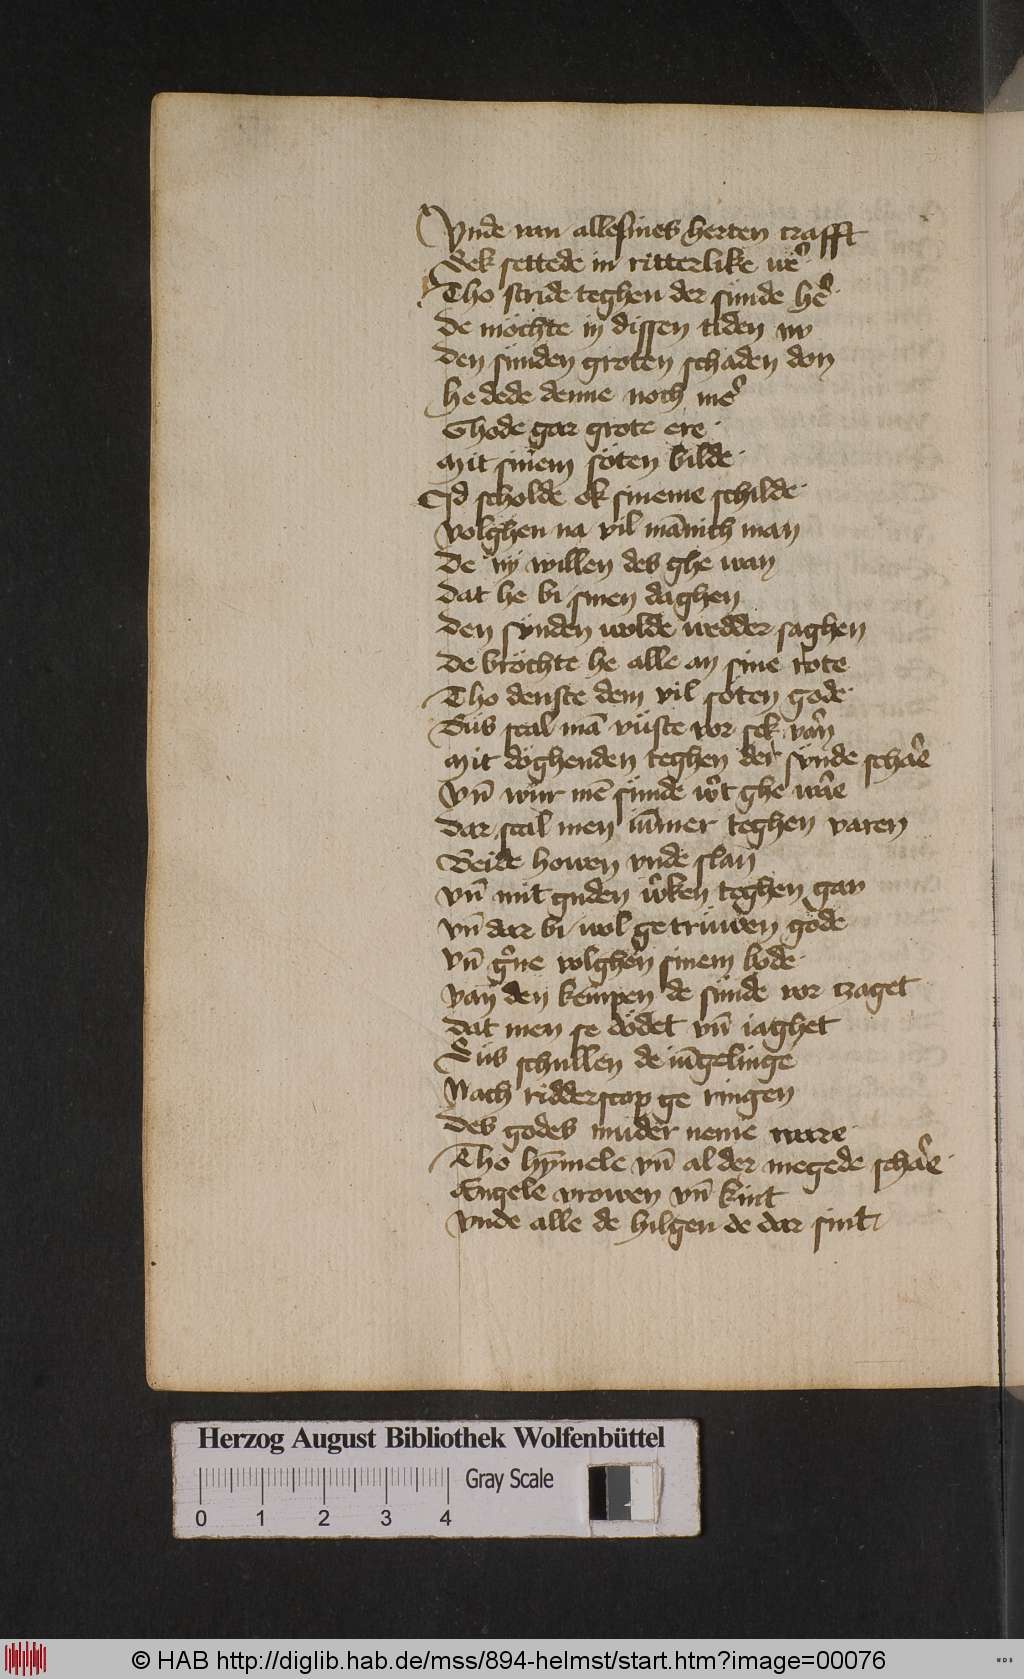 Vnde van alle sines herten crafft
Sek settede in ritterlike wer̄
Tho stride teghen der sunde her̄
De mochte in dissen tiden ny
Den sunden groten schaden don
he dede denne noch mer̄
Ghode gar grote ere
Mit sinem söten bilde
Id scholde ok sineme schilde
volghen na vil mānich man
De ny willen des ghe wan
Dat he bi sinen daghen
Den sunden wolde wedder saghen
De bröchte he alle an sine rote
Tho denste dem vil söten gode
Sus scal mā vuste vor sek varn̄
Mit döghenden teghen der sunde schar̄e
Vn̄ wur mē sunde wert ghe ware
Dar scal men īmmer teghen varen
Beide howen vnde slan
Vn̄ mit guden werken teghen gan
Vn̄ dar bi wol getruwen gode
Vn̄ gerne volghen sinem bode
Van den kempen de sunde vor tzaget
Dat men se dödet vn̄ iaghet
Sus schullen de iūgelinge
Nach ridderscop ge ringen
Des godes muder neme ware
Tho hȳmele vn̄ al der megede schar̄e
Engele vrowen vn̄ kint
Vnde alle de hilgen de dar sint
Herzog August Bibliothek Wolfenbüttel
Gray Scale
0 1 2 3 4
© HAB http://diglib.hab.de/mss/894-helmst/start.htm?image=00076